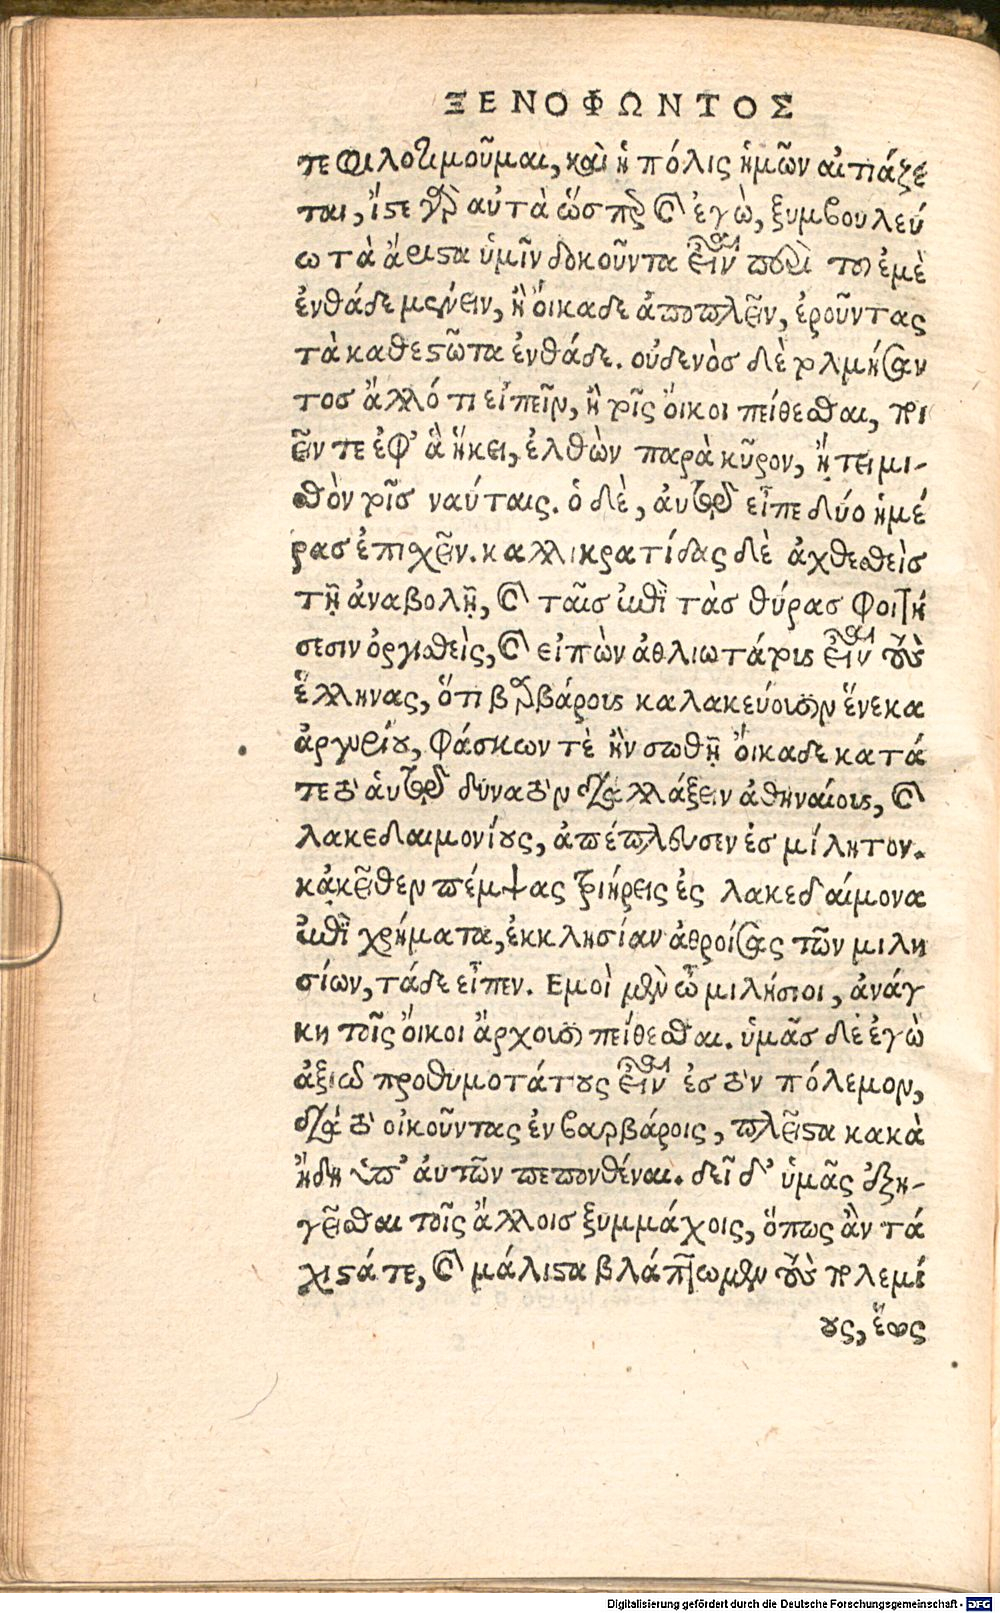 ΞΕΝΟΦΩΝΤΟΣ
τε φιλοτιμοῦμαι, καὶ ἡ πόλις ἡμῶν αἰτιάζε
ται, ἴστε γὰρ αὐτὰ ὥσπερ καὶ ἐγὼ, ξυμβουλεύ
ω τὰ ἄριστα ὑμῖν δοκοῦντα εἶναι περὶ τοῦ ἐμὲ
ἐνθάδε μένειν, ἢ οἴκαδε ἀποπλεῖν, ἐροῦντας
τὰ καθεστῶτα ἐνθάδε. οὐδενὸσ δὲ τολμήσαν
τοσ ἄλλό τι εἰπεῖν, ἢ τοῖς οἴκοι πείθεσθαι, ποι
εῖν τε ἐφ' ἃ ἥκει, ἐλθὼν παρὰ κῦρον, ᾔτει μι-
σθὸν τοῖσ ναύταις. ὁ δὲ, ἀυτῷ εἶπε δύο ἡμέ
ρασ ἐπισχεῖν. καλλικρατίδας δὲ ἀχθεσθεὶσ
τῇ ἀναβολῇ, καὶ ταῖσ ἐπὶ τὰσ θύρασ φοιτή
σεσιν ὀργισθεὶς, καὶ εἰπὼν ἀθλιωτάτους εἶναι τοὺς
ἕλληνας, ὅτι βαρβάρους καλακεύουσιν ἕνεκα
ἀργυρίου, φάσκων τὲ ἢν σωθῇ οἴκαδε κατά
τε τὸ ἁυτῷ δυνατὸν διαλλάξειν ἀθηναίους, καὶ
λακεδαιμονίους, ἀπέπλευσεν ἐσ μίλητον.
κᾀκεῖθεν πέμψας τριήρεις ἐς λακεδαίμονα
ἐπὶ χρήματα, ἐκκλησίαν ἀθροίσας τῶν μιλη
σίων, τάδε εἶπεν. Εμοὶ μὲν ὦ μιλήσιοι, ἀνάγ
κη τοῖς οἴκοι ἄρχουσι πείθεσθαι. ὑμᾶσ δὲ ἐγὼ
ἀξιῶ προθυμοτάτους εἶναι ἐσ τὸν πόλεμον,
διὰ τὸ οἰκοῦντας ἐν βαρβάροις, πλεῖστα κακὰ
ἤδη ὑπ' ἀυτῶν πεπονθέναι. δεῖ δ' ὑμᾶς ἐξη-
γεῖσθαι τοῖς ἄλλοισ ξυμμάχοις, ὅπως ἂν τά
χιστά τε, καὶ μάλιστα βλάπτωμεν τοὺς πολεμί
ους, ἕως
Digitalisierung gefördert durch die Deutsche Forschungsgemeinschaft - DFG